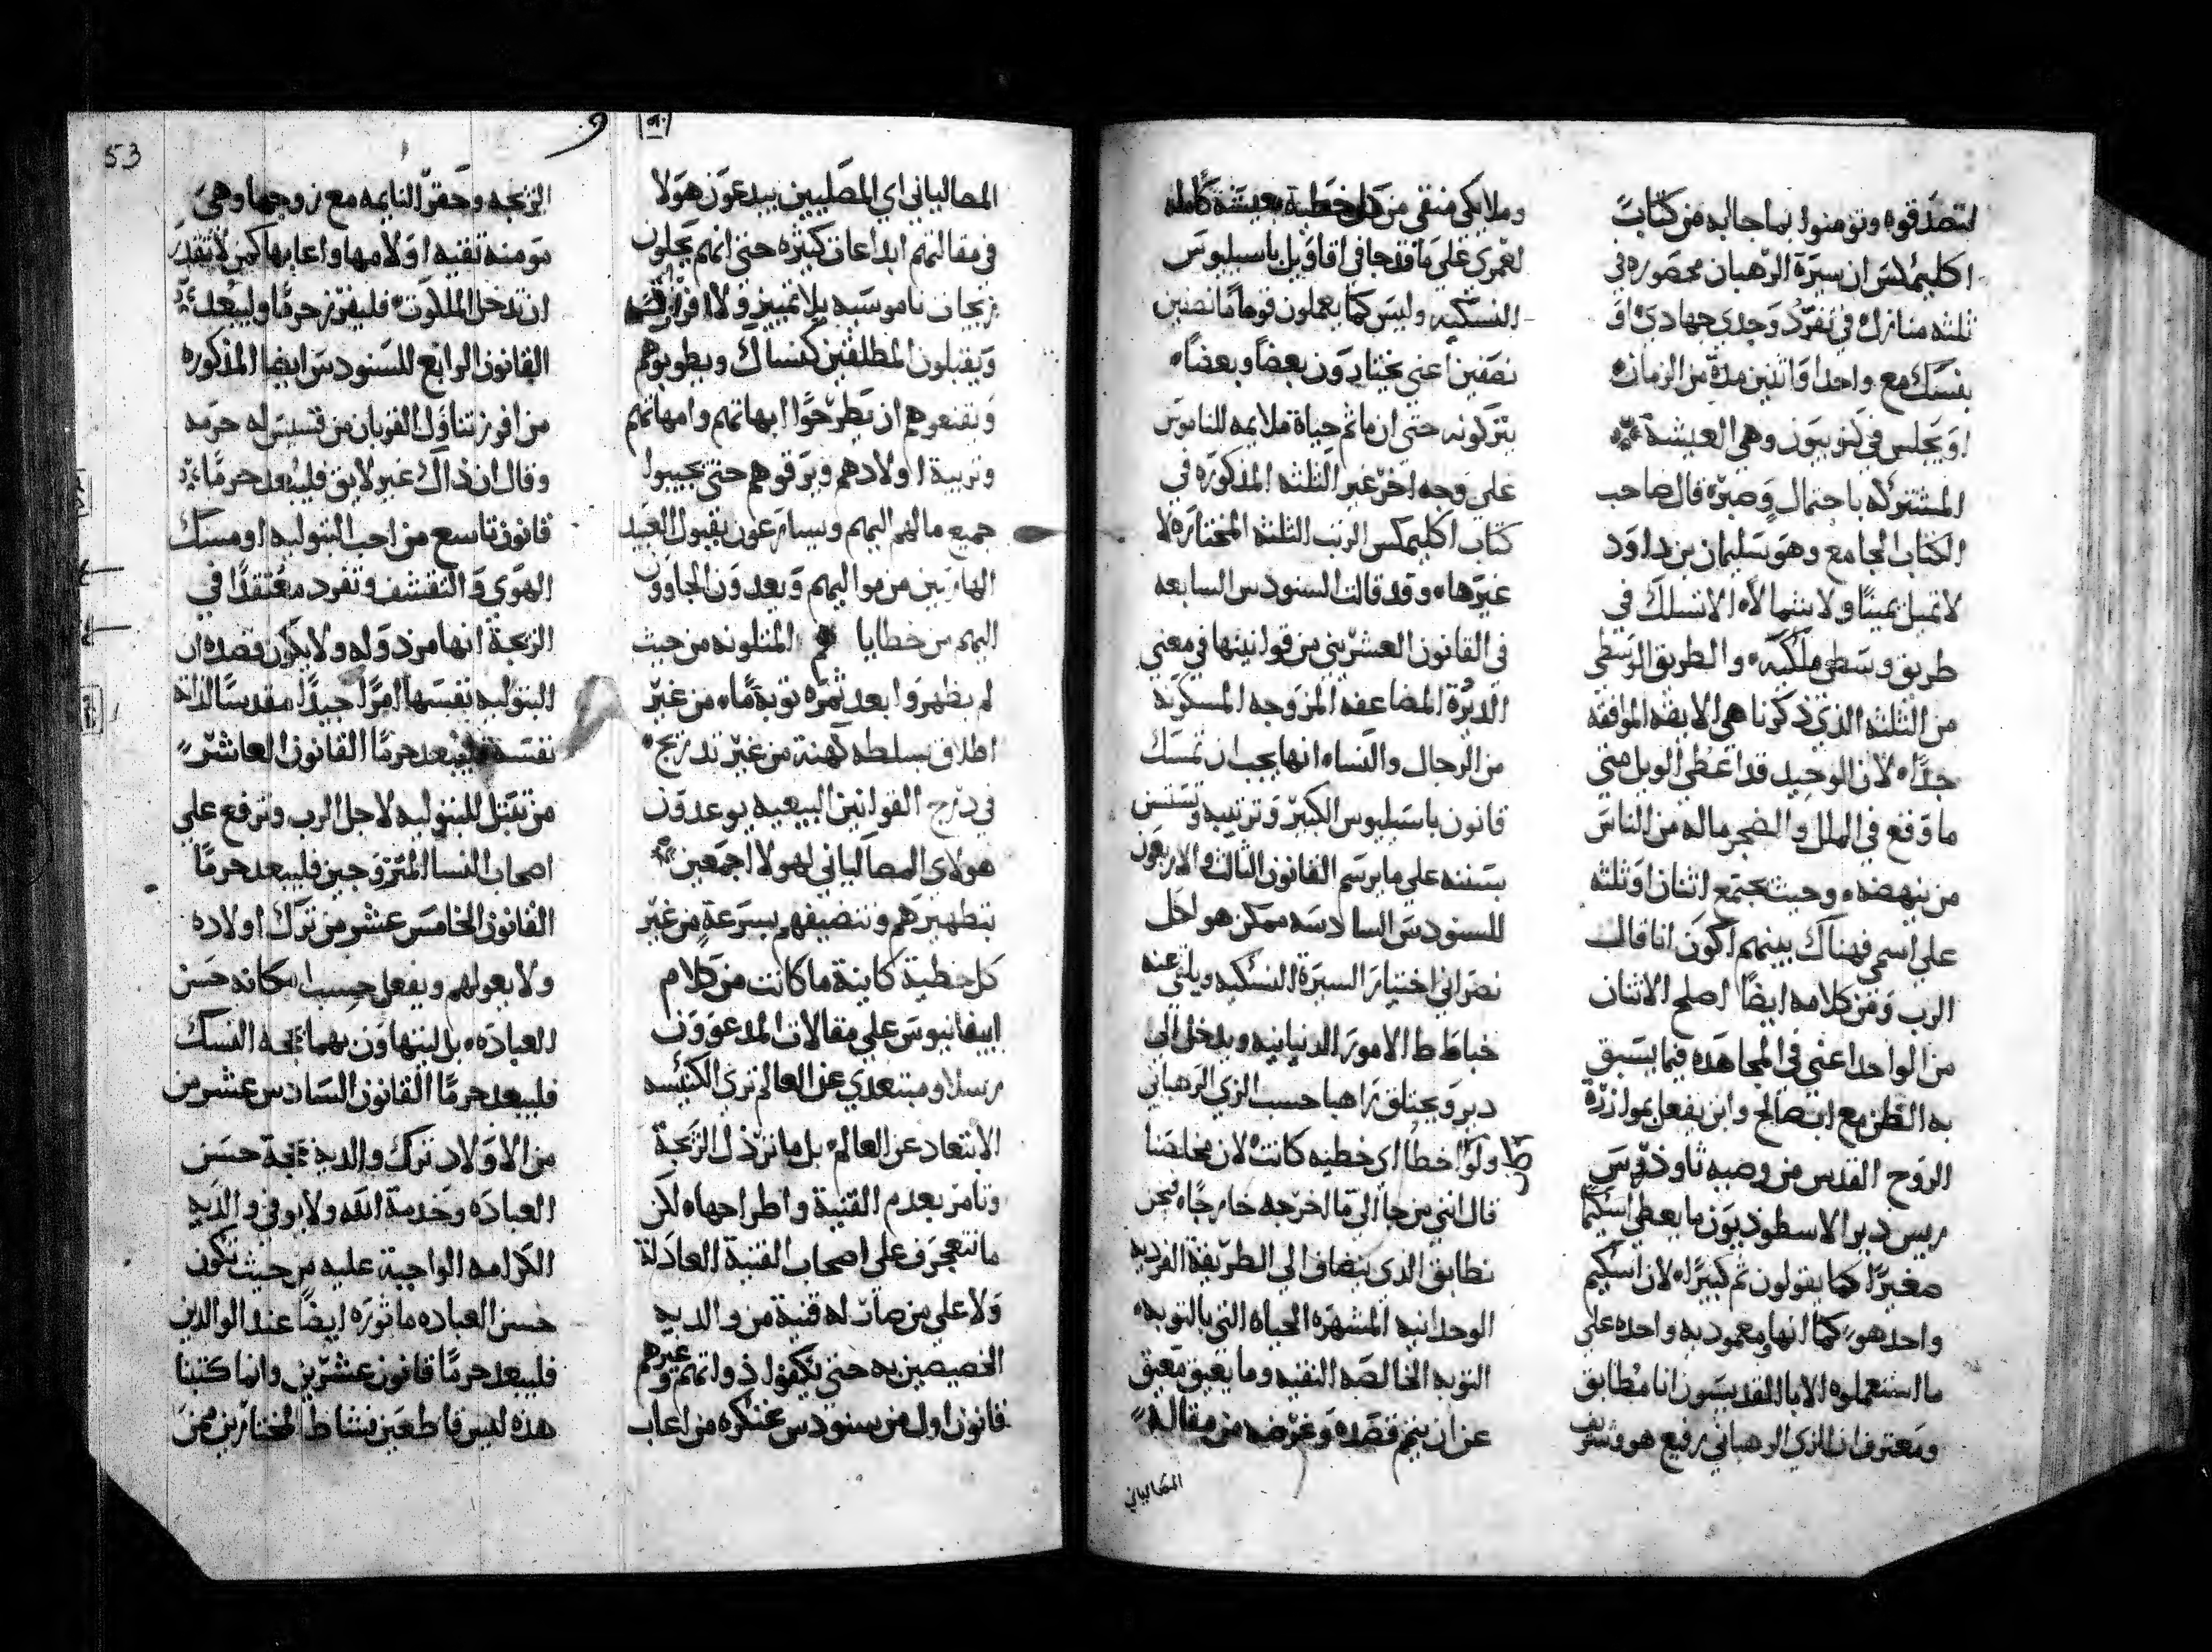 لتصدقوه وتومنوا بما جا به من كتاب
اكليمكس ان سيرة الرهبان محصوره في
ثلثه منازل في تفرد وحدي جهادي او
بنسك مع واحد او اثنين مدة من الزمان
او يجلس في كنوبيون وهي العيشة
المشتركه باحتمال وصبر قال صاحب
الكتاب الجامع وهو سليمان بن داود
لا تميل يمينًا ولا شمالاً الا تسلك في
طريق وسطى ملكيه والطريق الوسطى
من الثلثه الذي ذكرنا هي الايقه الموافقه
جدًا لان الوحيد قد اعطي الويل متى
ما وقع في الملل والضجر ما له من الناس
من ينهضه وحيث يجتمع اثنان او ثلثه
على اسمي فهناك بينهم اكون انا قالت
الرب ومن كلامه ايضًا اصلح الاثنان
من الواحد اعني في المجاهده فيما يسبق
به الظن مع ابن صالح وابن يفعل بموازرة
الروح القدس من وصيه ثاوذوس
ريس دير الاسطوديون ما يعطي اسكيمًا
صغيرًا كما يقولون ثم كبيرًا لان اسكيم
واحد هو كما انها معموديه واحده على
ما استعملوه الابا القديسون انا مطابق
ومعترف ان الزي الرهباني رفيع هو وشريف
وملايكي منقي من كل خطية بعيشة كامله
لعمري على ما قد جا في اقاويل باسيليوس
النسكيه وليس كما يعملون قوما ما نصفين
نصفين اعني يختارون بعضًا وبعضًا
يتركونه حتى ان ما ثم حياة ملايمه للناموس
على وجه اخر غير الثلثه المذكوره في
كتاب اكليمكس الرتب الثلثه المختاره لا
غيرها وقد قالت السنودس السابعه
في القانون العشرين من قوانينها في معنى
الديرة المضاعفه المزوجه المسكونه
من الرجال والنساء انها يجب ان تمسك
قانون باسيليوس الكبير وترتيبه وتستن
بسننه على ما يرسم القانون الثالث والاربعون
للسنودس السادسه ممكن هو لكل
نصراني اختيار السيرة النسكيه ويلقي عنه
خباطط الامور الدنيانيه ويدخل الى
دير ويحتلق راهبا حسب الزي الرهباني
ولو اخطا اي خطيه كانت لان مخلصنا
قال انني من جا الي ما اخرجه خارجًا فنحن
نطابق الذي يتضاف الى الطريقة الفرديه
الوحدانيه المشهره الحياة التي بالتوبه
التوبه الخالصه النقيه وما يعيق معيق
عن ان يتم قصده وغرضه من مقاله
المصالياني
المصالياني اي المصليين يبدعون هولا
في مقالتهم ابداعات كثيره حتى انهم يحلون
زيجات ناموسيه بلا تمييز ولا افراز
ويقبلون المطلقين كنساك ويطوبوهم
ويقنعوهم ان يطرحوا ابهاتهم وامهاتهم
وتربية اولادهم ويرقوهم حتى يجيبوا
جميع ما لهم اليهم ويسارعون بقبول العبيد
الهاربين من مواليهم ويعدون الجاوون
اليهم من خطايا المتلونه من حيث
لم يظهروا بعد ثمره توبة ما من غير
اطلاق بسلطه كهنة من غير تدريج
في درج القوانين البيعيه يوعدون
هولاي المصالياني لهولا اجمعين
بتطهيرهم وتنضيفهم بسرعة من غير
كل خطية كاينة ما كانت من كلام
ابيفانيوس على مقالات المدعوون
رسلا ومبتعدي عن العالم ترى الكنيسه
الابتعاد عن العالم بل ما ترذل الزيجة
وتامر بعدم القنية واطراحها لكن
ما تتعجرف على اصحاب القنية العادلة
ولا على من صارت له قنية من والديه
الخصيصين به حتى يكفوا ذواتهم وغيرهم
قانون اول من سنودس غنكره من اعاب
الزيجه وحقر النايمه مع زوجها وهي
مومنه تقيه او لامها واعابها كمن لا تقدر
ان تدخل الملكوت فليفرز حرمًا وليبعد
القانون الرابع للسنودس ايضا المذكوره
من افرز تناول القربان من قسيس له حرمه
وقال ان ذاك غير لايق فليبعد حرمًا
قانون تاسع من احب البتوليه او مسك
الهوى والتقشف وتفرد معتقدًا في
الزيجة انها مرذوله ولا يكون قصده ان
البتوليه نفسها امرًا جيدًا مقدسًا لذاته
نفسة فليبعد حرمًا القانون العاشر
من تقبل للبتوليه لاجل الرب وترفع على
اصحاب النسا المتزوجين فليبعد حرمًا
القانون الخامس عشر من ترك اولاده
ولا يعولهم ويفعل حسب امكانه حسن
العباده بل ليتهاون بهما بحجة النسك
فليبعد حرمًا القانون السادس عشر من
من الاولاد ترك والديه بحجة حسن
العباده وخدمة الله ولا يوفي والديه
الكرامه الواجبة عليه من حيث تكون
حسن العباده ماثوره ايضًا عند الوالدين
فليبعد حرمًا قانون عشرين وانما كتبنا
هذه ليس قاطعين نشاط المختارين ممن
53